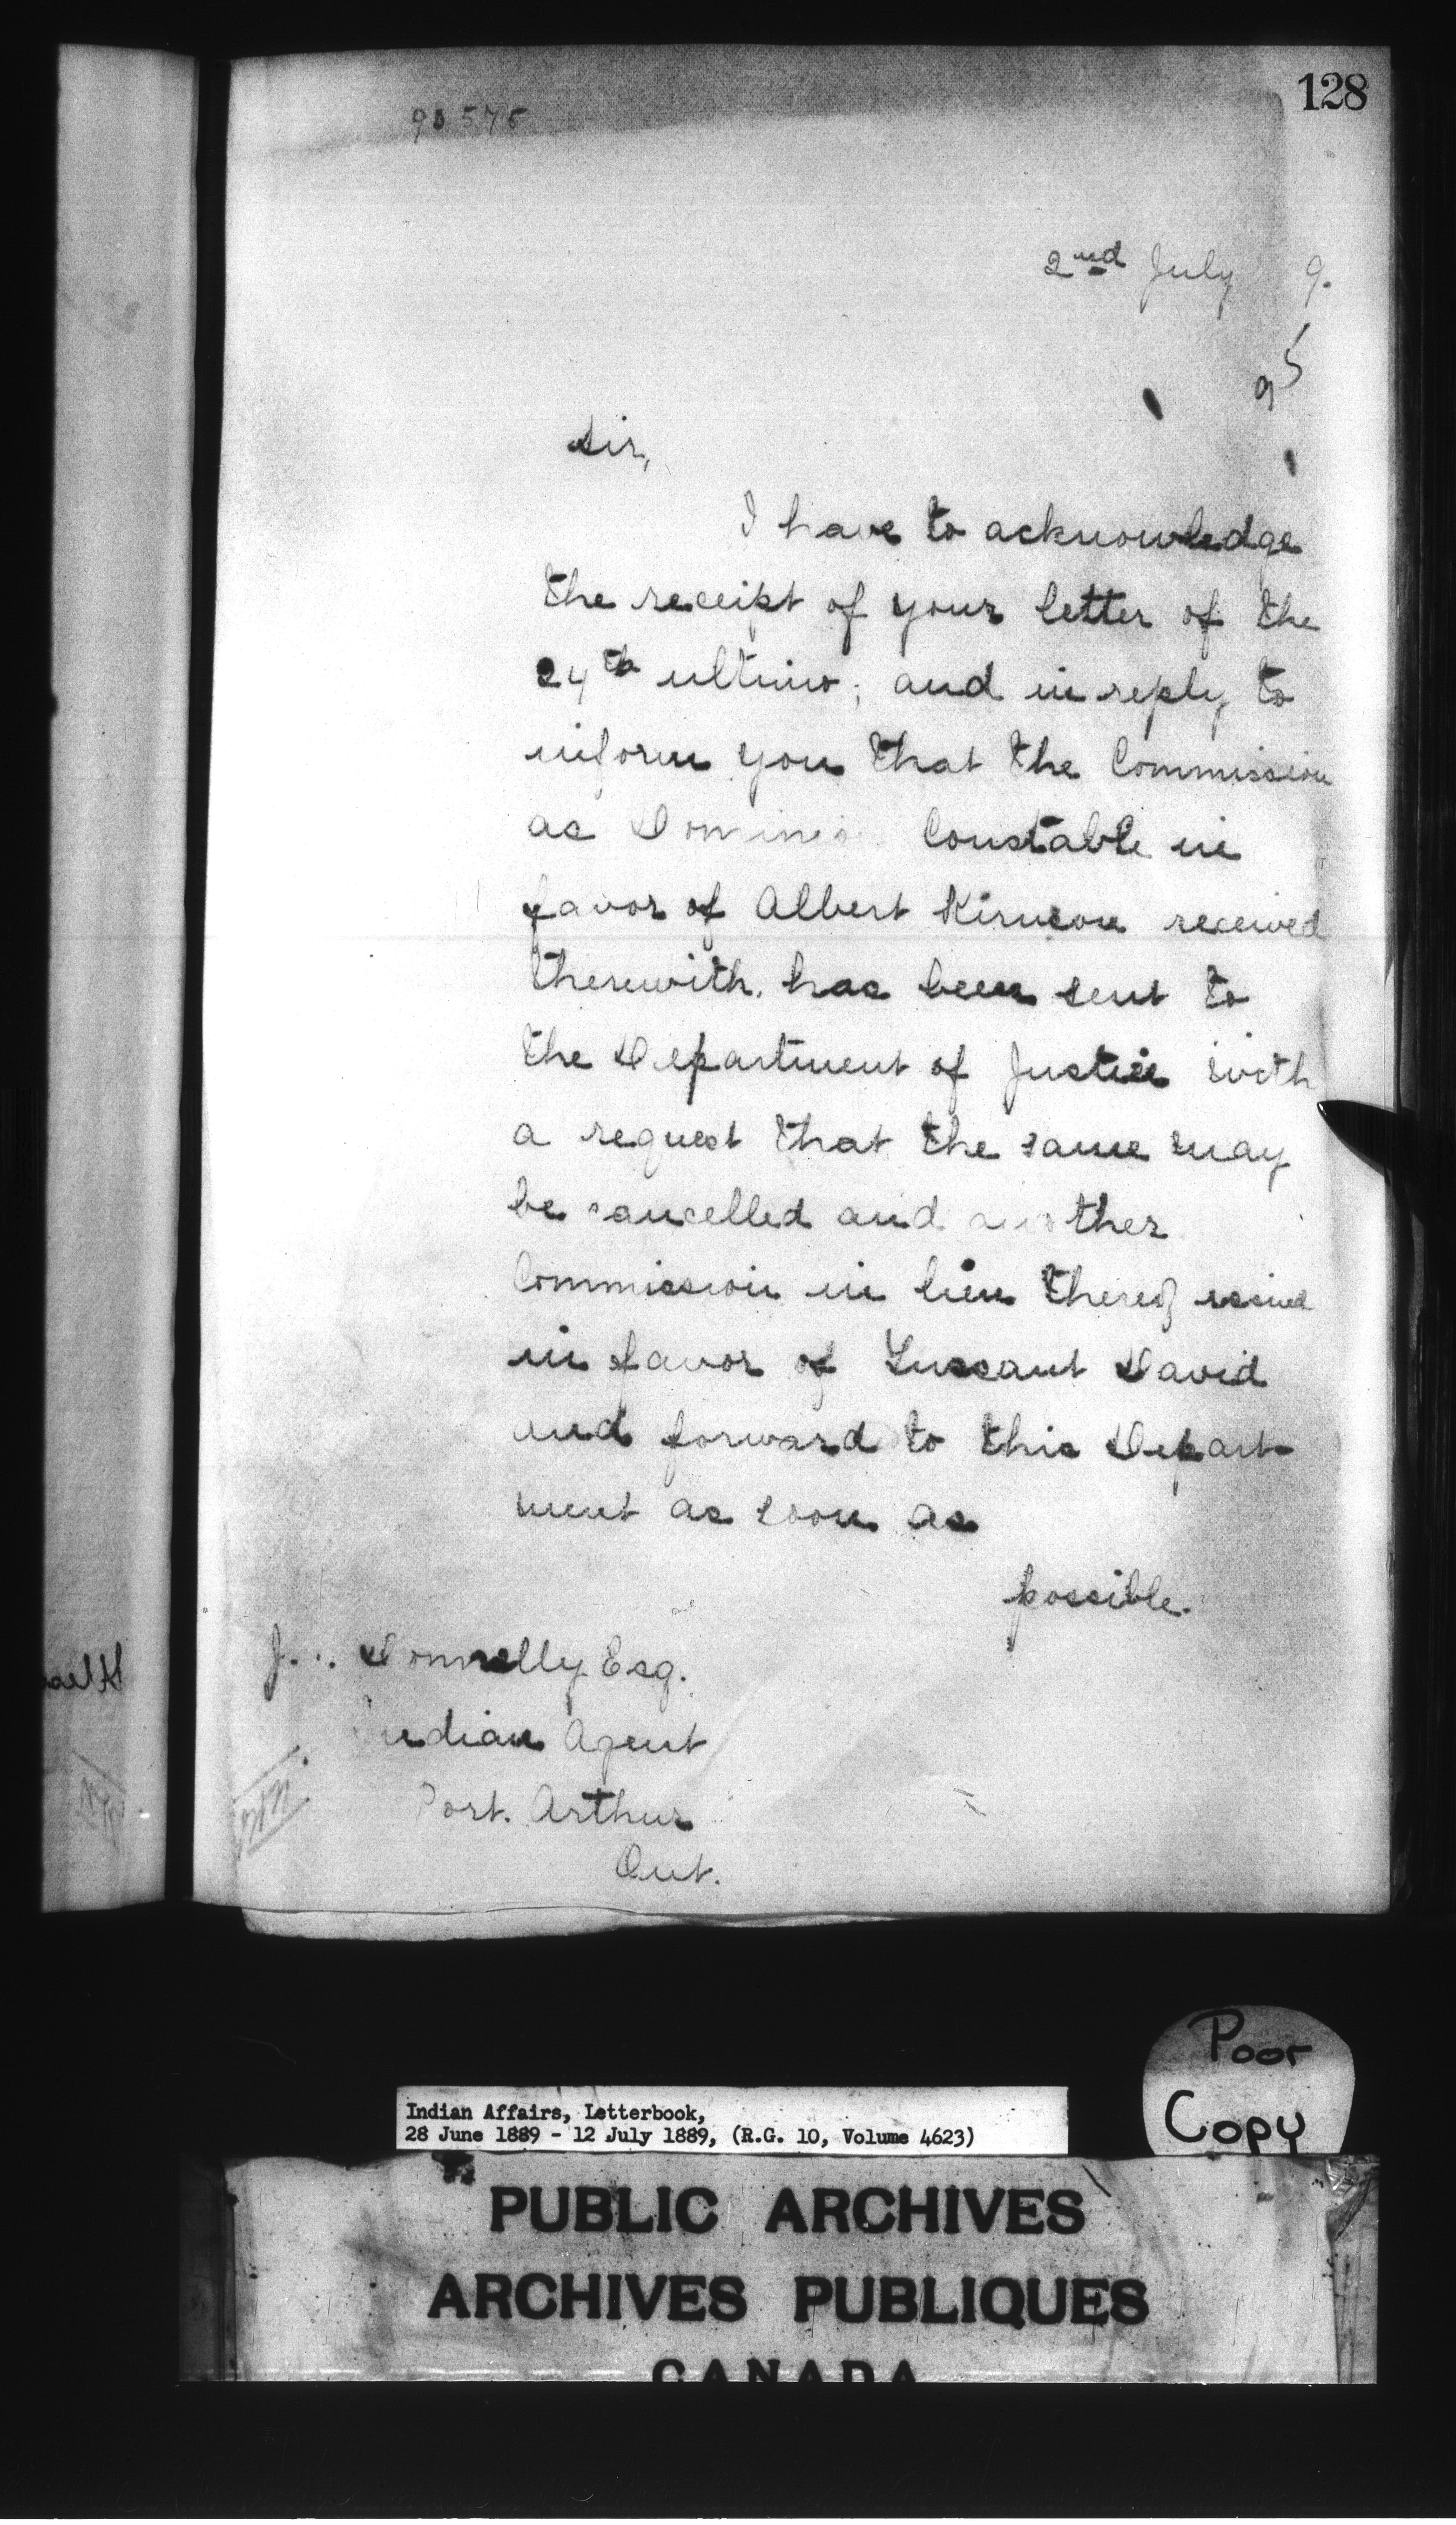 128
2nd July 9.
95
Sir,
I have to acknowledge
the receipt of your letter of the
24th ultimo; and in reply to
inform you that the Commission
as Constable in
favor of Albert received
therewith, has been sent to
the Department of Justice with
a request that the same may
be cancelled and another
Commission in lieu thereof issued
in favor of David
and forward to this Depart-
ment as soon as
possible.
J. Donnelly Esq.
Indian Agent
Port. Arthur
Ont.
Poor
Copy
Indian Affairs, Letterbook,
28 June 1889 - 12 July 1889, (R.G. 10, Volume 4623)
PUBLIC ARCHIVES
ARCHIVES PUBLIQUES
CANADA